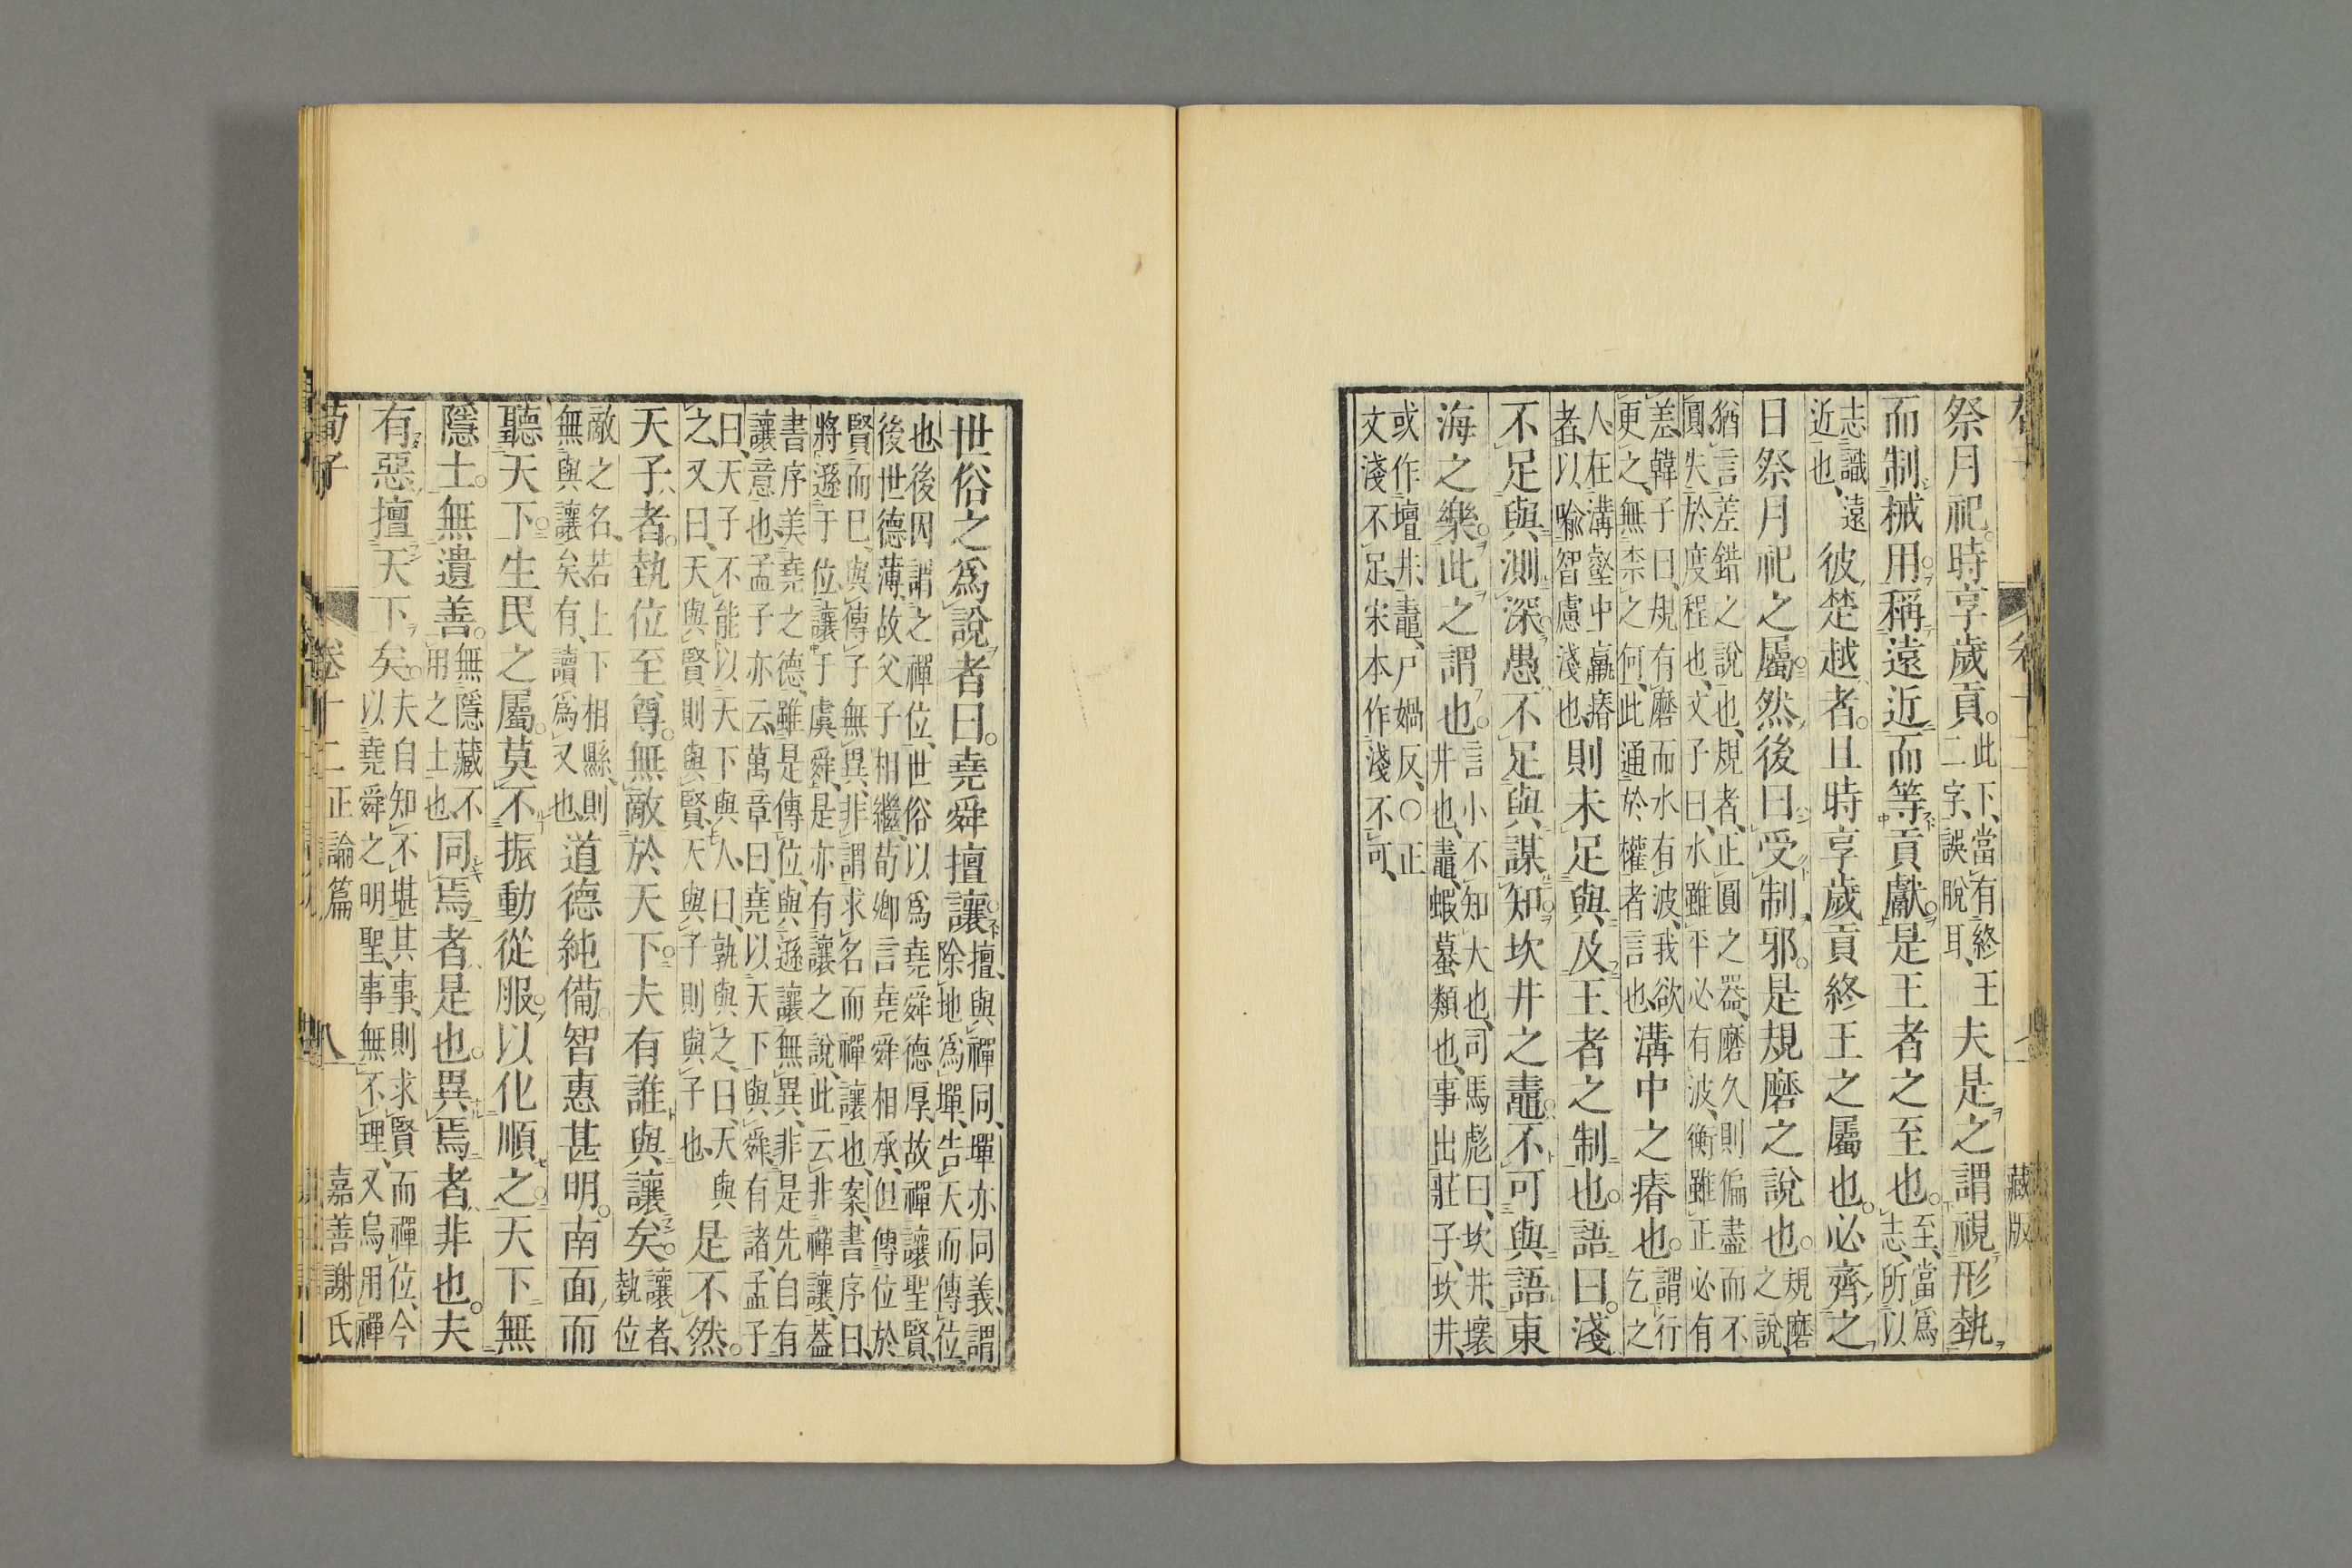 祭月祀時享歲貢此下當有終王二字誤脫耳夫是之謂視形埶
而制械用稱遠近而等貢獻是王者之至也至當爲志所以
志識遠近也彼楚越者且時享歲貢終王之屬也必齊之
日祭月祀之屬然後曰受制邪是規磨之說也規磨之說
猶言差錯之說也規者正圓之器磨久則偏盡而不圓失於度程也文子曰水雖平必有波衡雖正必有
差韓子曰規有磨而水有波我欲更之無柰之何此通於權者言也溝中之瘠也謂行乞之
人在溝壑中羸瘠者以喩智慮淺也則未足與及王者之制也語曰淺
不足與測深愚不足與謀知坎井之鼃不可與語東
海之樂此之謂也言小不知大也司馬彪曰坎井壞井也鼃蝦蟇類也事出莊子坎井
或作壇井鼃戶媧反○正文淺不足宋本作淺不可
藏版
世俗之爲說者曰堯舜擅讓擅與禪同墠亦同義謂除地爲墠告天而傳位
也後因謂之禪位世俗以爲堯舜德厚故禪讓聖賢後世德薄故父子相繼荀卿言堯舜相承但傳位於
賢而已與傳子無異非謂求名而禪讓也案書序曰將遜于位讓于虞舜是亦有讓之說此云非禪讓葢
書序美堯之德雖是傳位與遜讓無異非是先自有讓意也孟子亦云萬章曰堯以天下與舜有諸孟子
曰天子不能以天下與人曰孰與之曰天與之又曰天與賢則與賢天與子則與子也是不然
天子者埶位至尊無敵於天下夫有誰與讓矣讓者埶位
敵之名若上下相縣則無與讓矣有讀爲又也道德純備智惠甚明南面而
聽天下生民之屬莫不振動從服以化順之天下無
隱士無遺善無隱藏不用之士也同焉者是也異焉者非也夫
有惡擅天下矣夫自知不堪其事則求賢而禪位今以堯舜之明聖事無不理又烏用禪
荀子 卷十二正論篇 八 嘉善謝氏